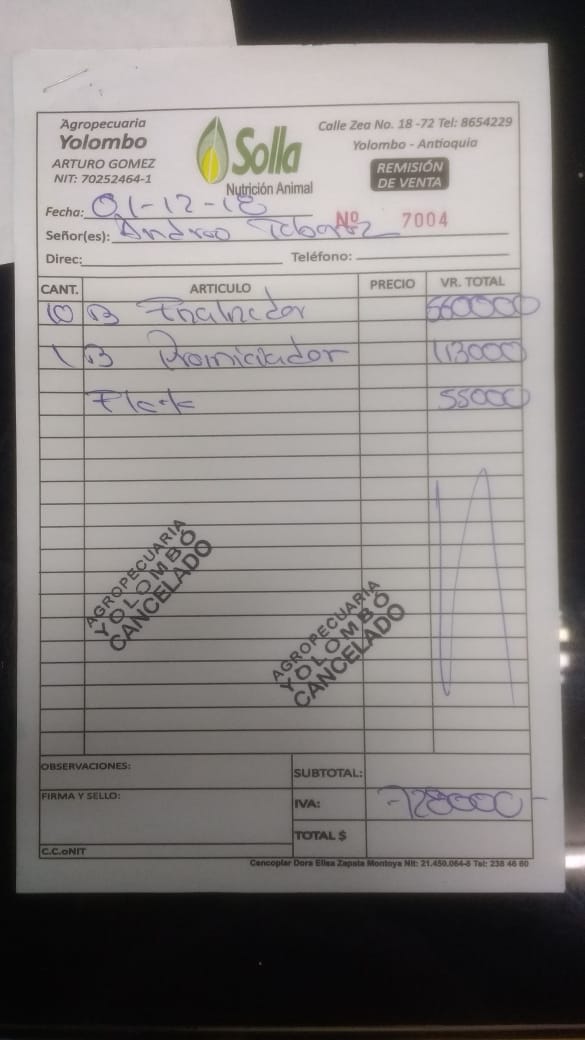 Agropecuaria
Yolombo
ARTURO GOMEZ
NIT: 70252464-1
Solla
Nutrición Animal
Calle Zea No. 18 -72 Tel: 8654229
Yolombo - Antioquia
REMISIÓN
DE VENTA
Fecha: 01-12-18
Nº 7004
Señor(es): Andres
Direc: Teléfono:
CANT. ARTICULO PRECIO VR. TOTAL
10 B 560000
1 B Premiciador 113000
Flete 55000
AGROPECUARIA
YOLOMBÓ
CANCELADO
AGROPECUARIA
YOLOMBÓ
CANCELADO
OBSERVACIONES:
SUBTOTAL:
FIRMA Y SELLO:
IVA: -728000-
TOTAL $
C.C.oNIT
Cencopiar Dora Elisa Zapata Montoya Nit: 21.450.064-6 Tel: 238 46 60